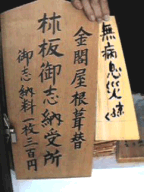 金閣屋根葺替
柿板御志納受所
御志納料一枚三百円
無病息災